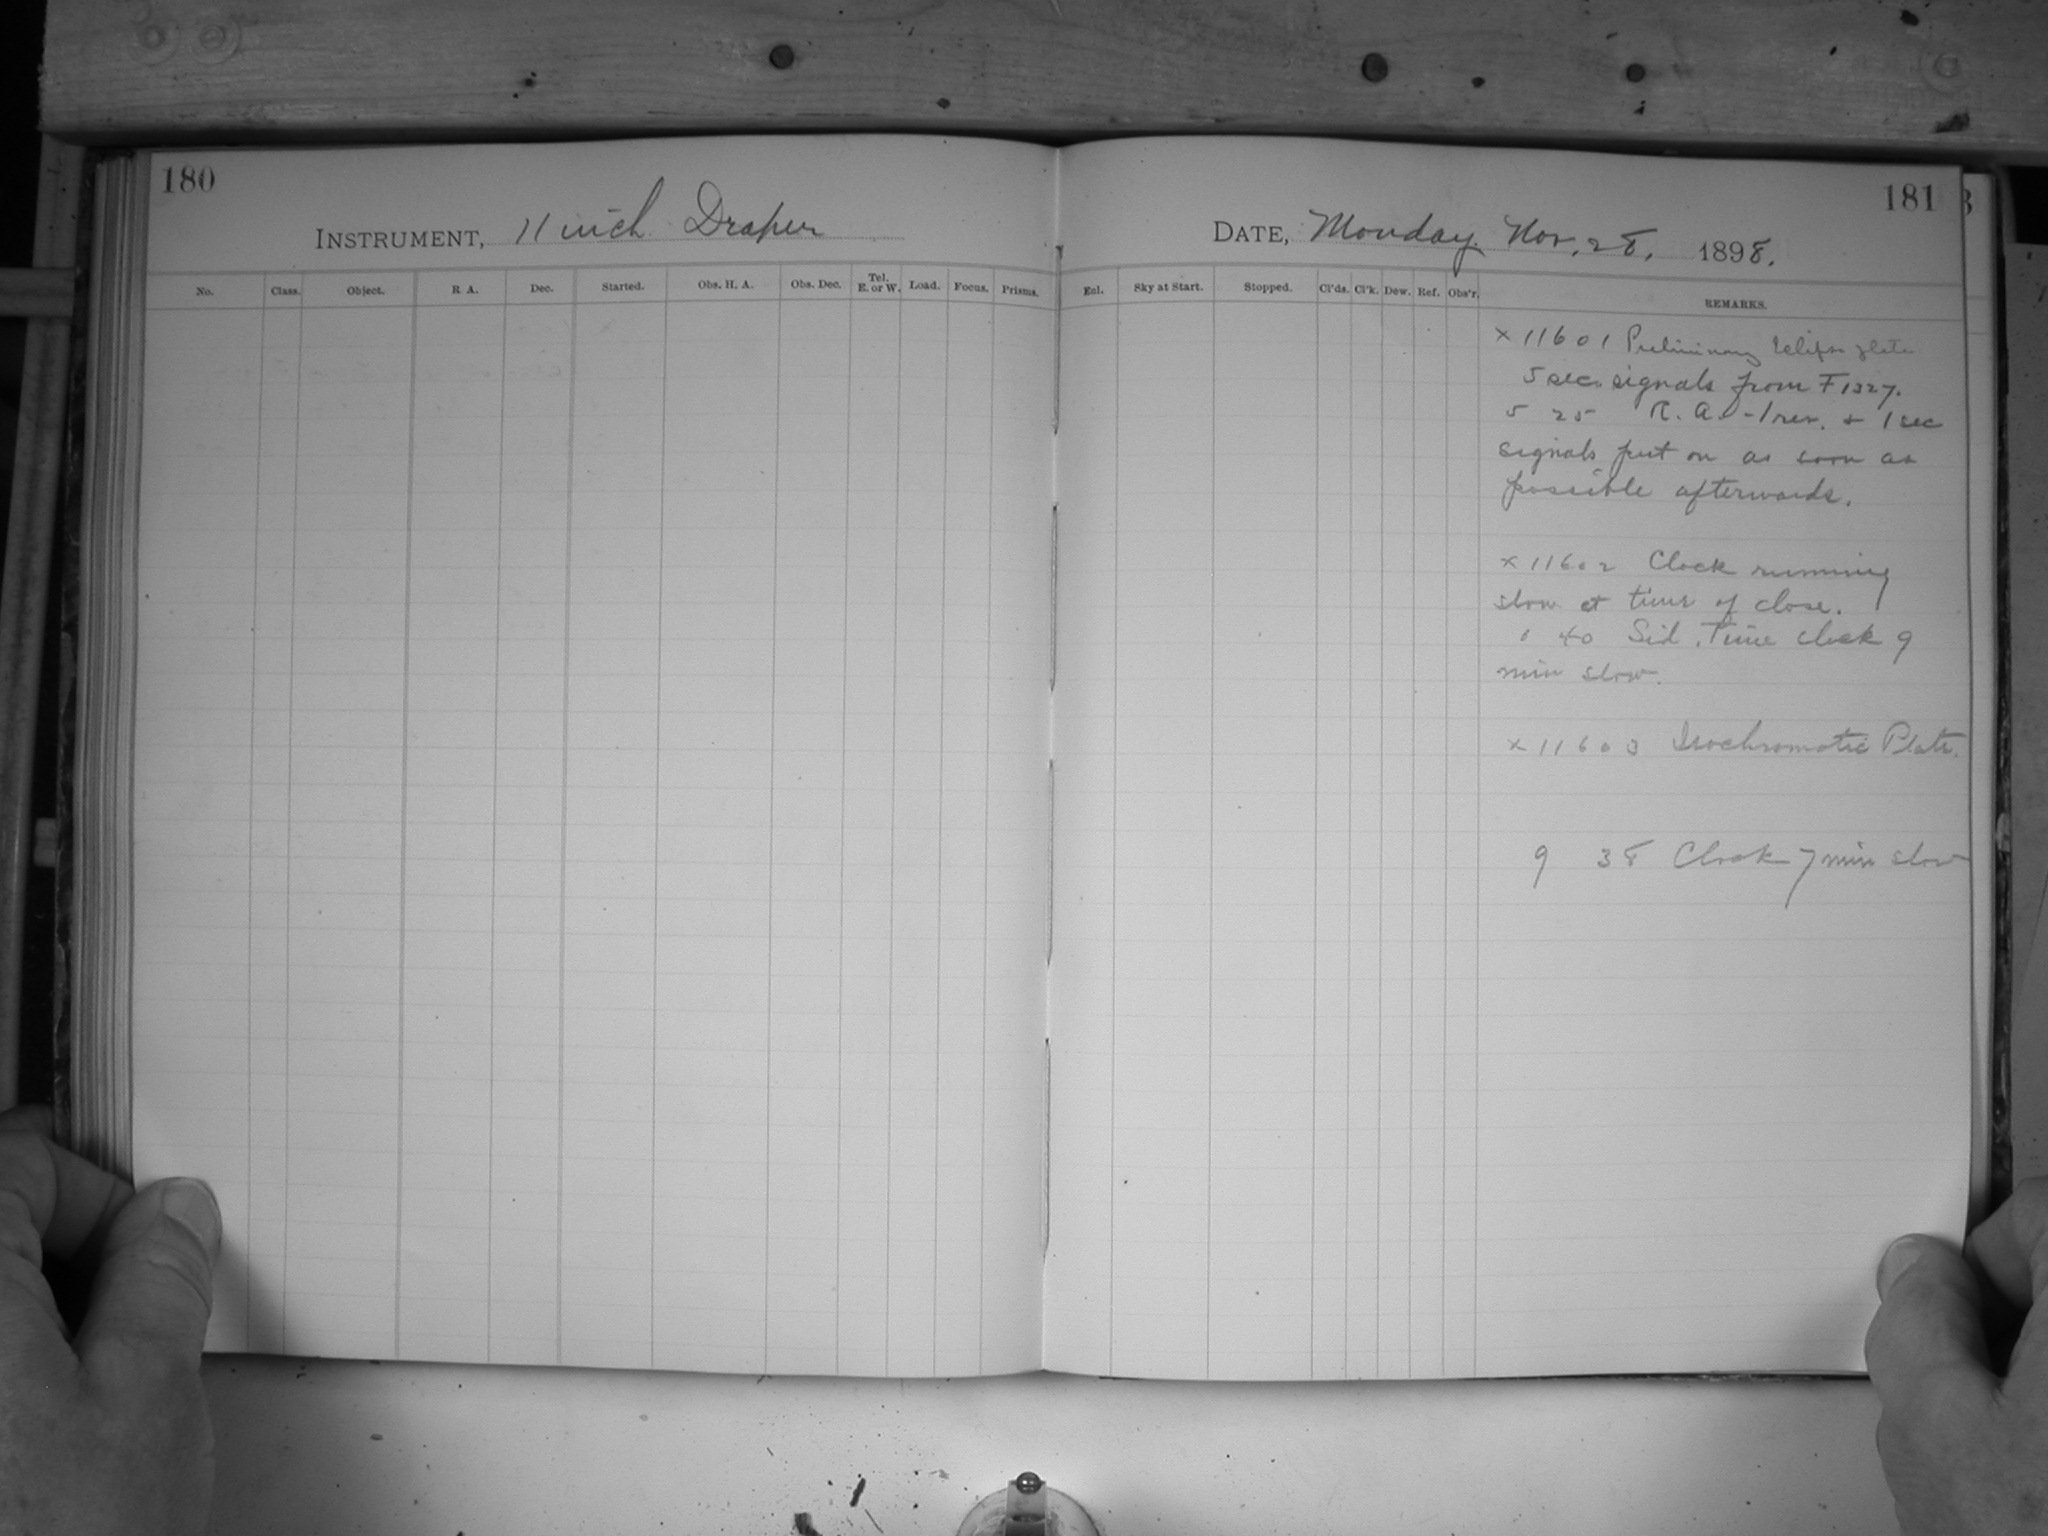 180
INSTRUMENT, 11 inch Draper
No. Class. Object. R A. Dec. Started. Obs. H. A. Obs. Dec. Tel. E. or W. Load. Focus. Prisms.
181
DATE, Monday. Nov. 28, 1898.
Enl. Sky at Start. Stopped. Cl'ds. Cl'k. Dew. Ref. Obs'r. REMARKS.
x 11601 Preliminary Eclipse plate
5 sec. signals from F 1327.
5 25 R. A. - 1 rev. & 1 sec
signals put on as soon as
possible afterwards.
x 11602 Clock running
slow at time of close.
0 40 Sid. Time clock 9
min slow.
x 11603 Isochromatic Plate.
9 38 Clock 7 min slow